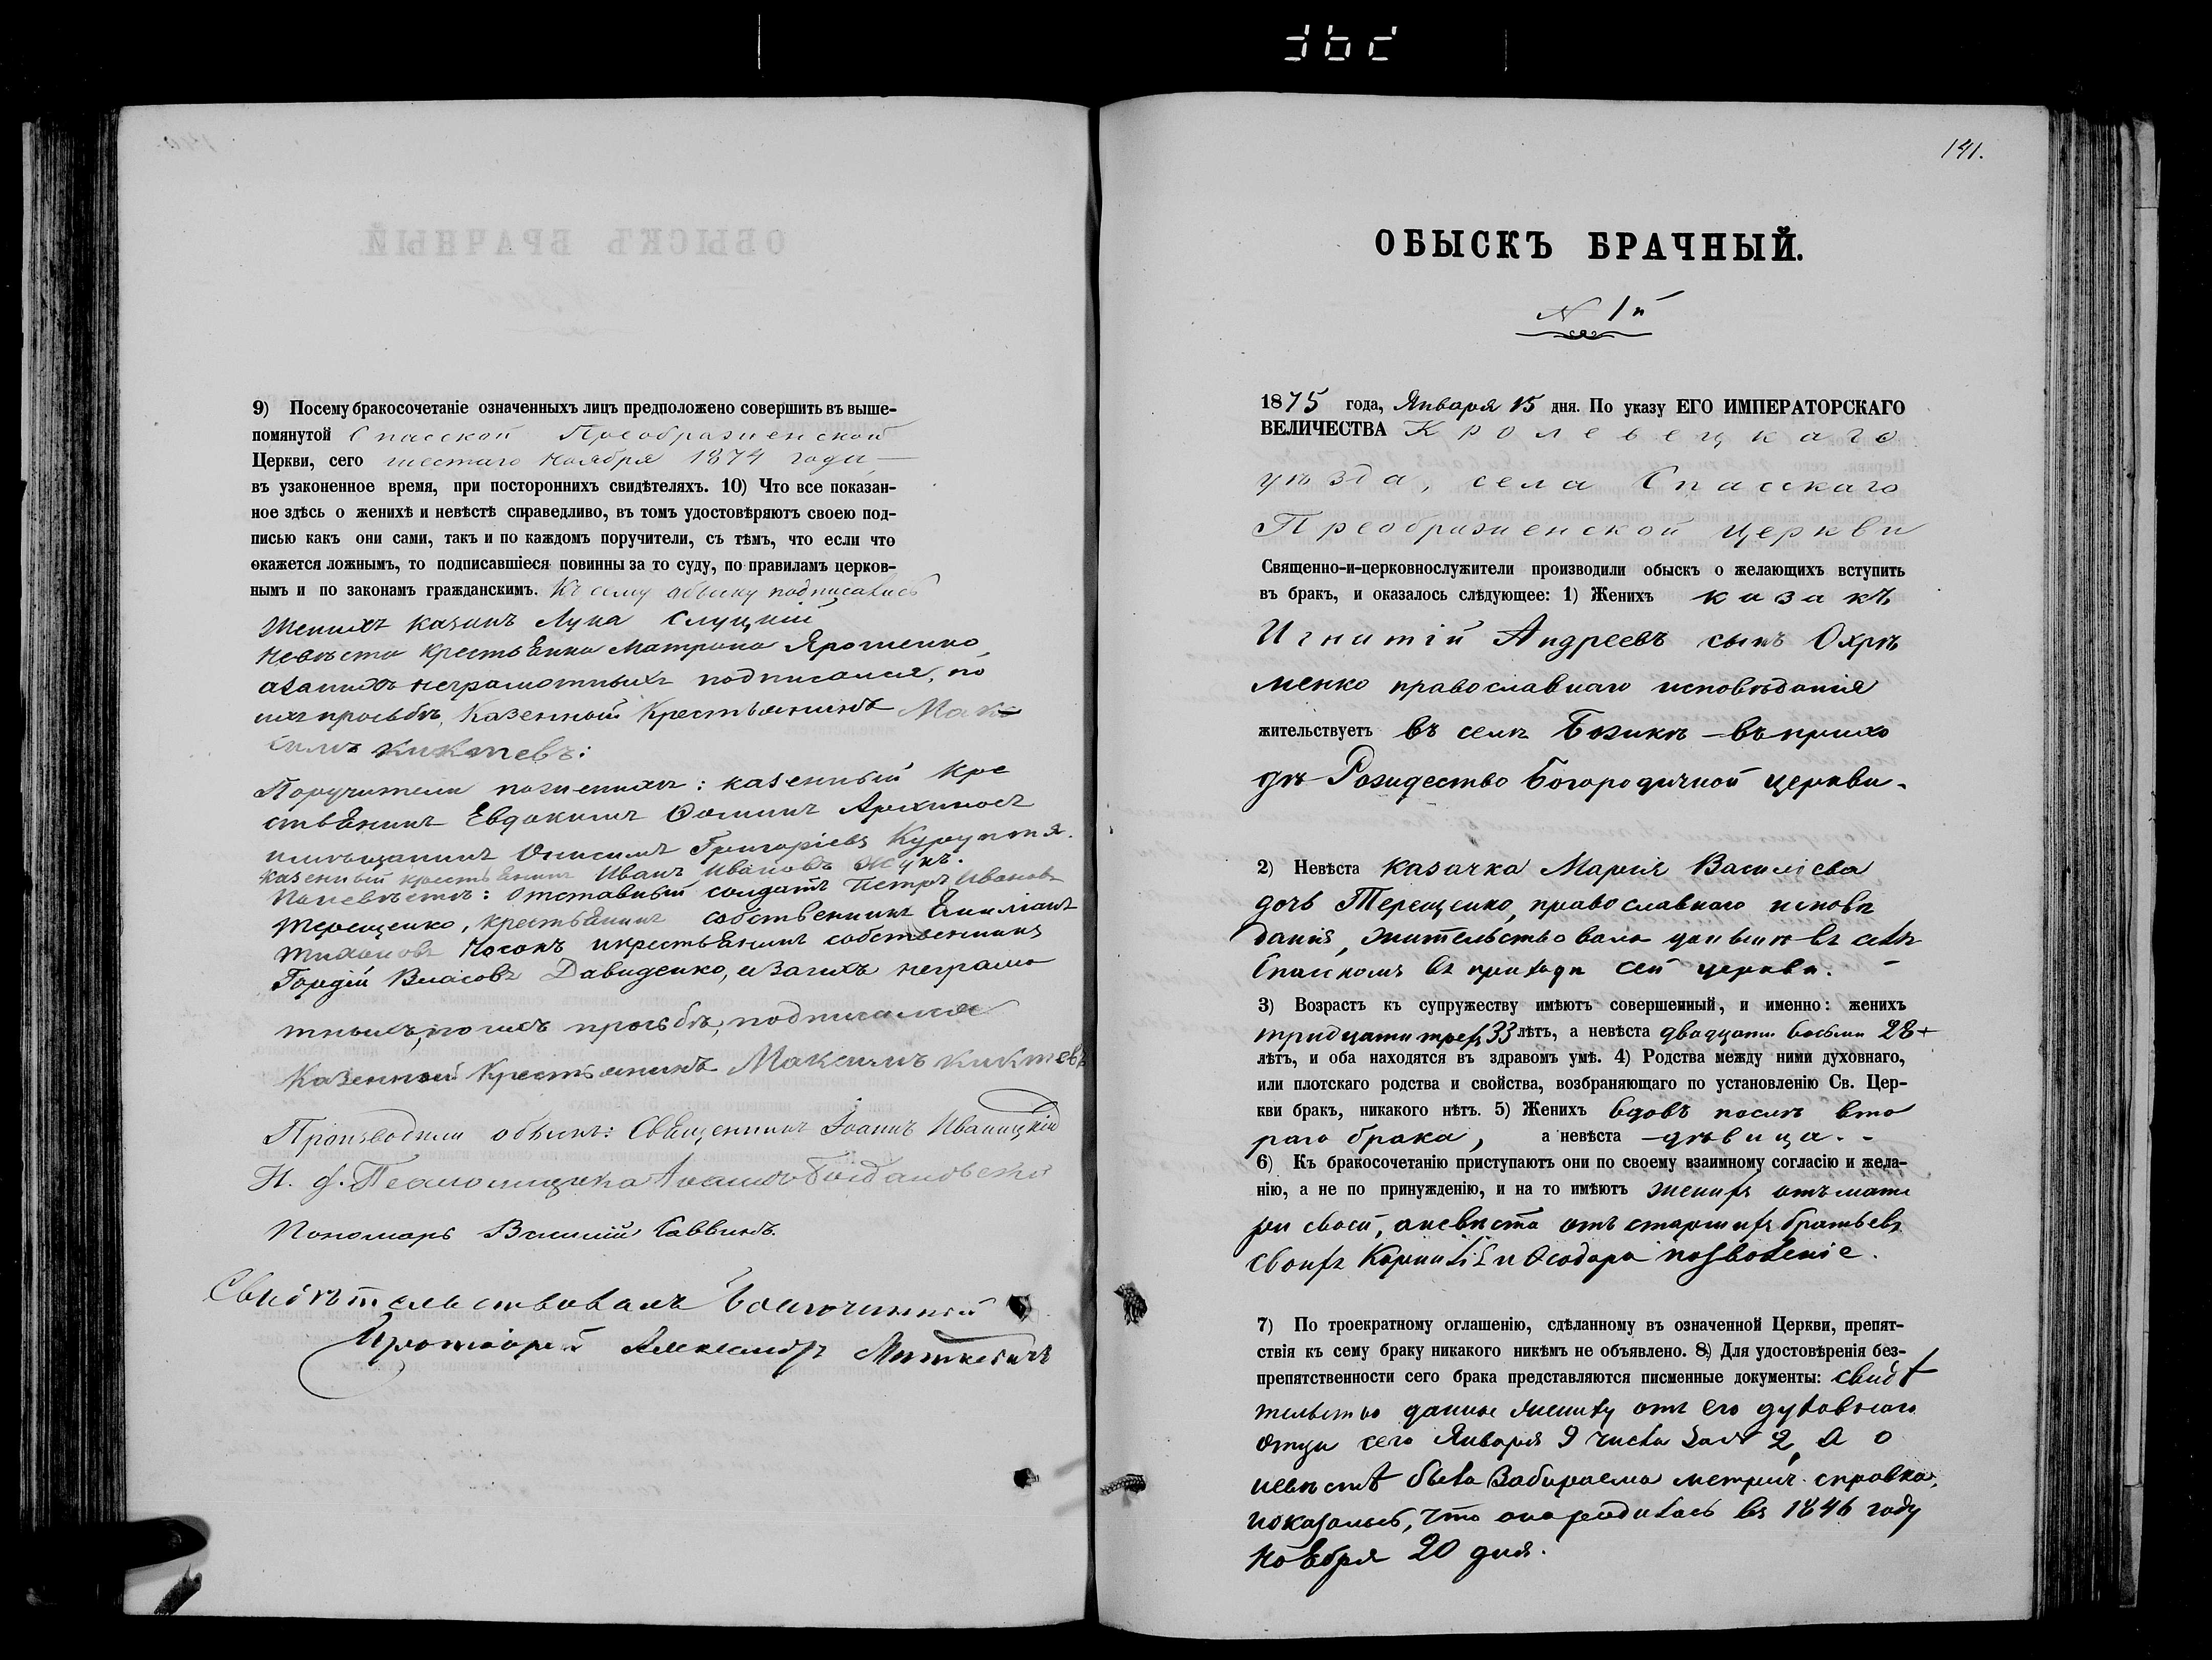 9) Посему бракосочетаніе означенныхъ лицъ предположено совершить въ выше-
помянутой Спасской Преображенской
Церкви, сего шестаго Ноября 1874 года
въ узаконенное время, при постороннихъ свидѣтеляхъ. 10) Что все показан-
ное здѣсь о женихѣ и невѣстѣ справедливо, въ томъ удостовѣряютъ своею под-
писью какъ они сами, такъ и по каждомъ поручители, съ тѣмъ, что если что
окажется ложнымъ, то подписавшіеся повинны за то суду, по правиламъ церков-
нымъ и по законамъ гражданскимъ. Къ сему обыску подписались
Женихъ казакъ Лука Слуцкій
Невѣста крестьянка Матрона Ярошенко,
а за нихъ неграмотныхъ подписался, по
ихъ прозьбѣ, Казенный Крестьянинъ Мак
симъ Никтевъ:
Поручители по женихѣ: казенный кре
стьянинъ Евдокимъ Ѳоминъ Архипось
и мѣщанинъ Онисимъ Григоріевъ
казенный крестьянинъ Иванъ Ивановъ Жукъ.
По невѣстѣ: отставный солдатъ Петръ Ивановъ
Терещенко, крестьянинъ собственникъ Емиліанъ
Тихоновъ Носокъ и крестьянинъ собственникъ
Гордій Власовъ Давиденко, а за нихъ неграмо
тныхъ, по ихъ прозьбѣ, подписался
Казенный Крестьянинъ Максимъ Никтевъ
Производили обыскъ: Священникъ Іоаннъ Иваницкій
И. д. Псаломщика
Пономарь Василій Саввинъ.
Свидѣтельствовалъ Благочинный
Протоіерей Александръ
141.
ОБЫСКЪ БРАЧНЫЙ.
N 1й
1875 года, Января 15 дня. По указу ЕГО ИМПЕРАТОРСКАГО
ВЕЛИЧЕСТВА Кролевецкаго
уѣзда, села Спасскаго
Преображенской церкви
Священно-и-церковнослужители производили обыскъ о желающихъ вступить
въ бракъ, и оказалось слѣдующее: 1) Женихъ казакъ
Игнатій Андреевъ сынъ Охрѣ
менко православнаго исповѣданія
жительствуетъ въ селѣ Бозикѣ въ прихо
дѣ Рождество Богородичной церкви.
2) Невѣста казачка Марія Василіева
дочь Терещенко, православнаго исповѣ
данія, жительствовала донынѣ въ селѣ
Спасскомъ въ приходѣ сей церкви.
3) Возрастъ къ супружеству имѣютъ совершенный, и именно: женихъ
тридцати трехъ 33 лѣтъ, а невѣста двадцати восьми 28
лѣтъ, и оба находятся въ здравомъ умѣ. 4) Родства между ними духовнаго,
или плотскаго родства и свойства, возбраняющаго по установленію Св. Цер-
кви бракъ, никакого нѣтъ. 5) Женихъ вдовъ послѣ вто
раго брака, а невѣста дѣвица.
6) Къ бракосочетанію приступаютъ они по своему взаимному согласію и жела-
нію, а не по принужденію, и на то имѣютъ женихъ отъ мате
ри своей, а невѣста отъ старшихъ братьевъ
своихъ Корнилія и Ѳеодора позволеніе.
7) По троекратному оглашенію, сдѣланному въ означенной Церкви, препят-
ствія къ сему браку никакого никѣмъ не объявлено. 8) Для удостовѣренія без-
препятственности сего брака представляются писменные документы: свидѣ
тельство данное жениху отъ его духовнаго
отца сего Января 9 числа за N 2, а о
невѣстѣ была забираема метрич. справка,
показалось, что она родилась въ 1846 году
Ноября 20 дня.